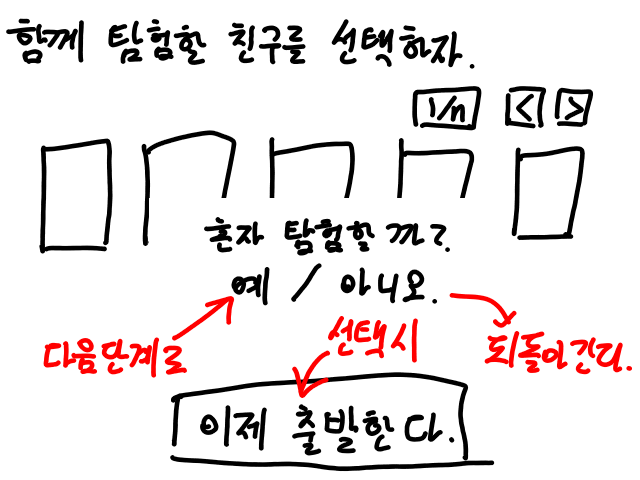 함께 탐험할 친구를 선택하자.
1/n < >
혼자 탐험할까?
예 / 아니오.
선택시
다음단계로
되돌아간다.
이제 출발한다.